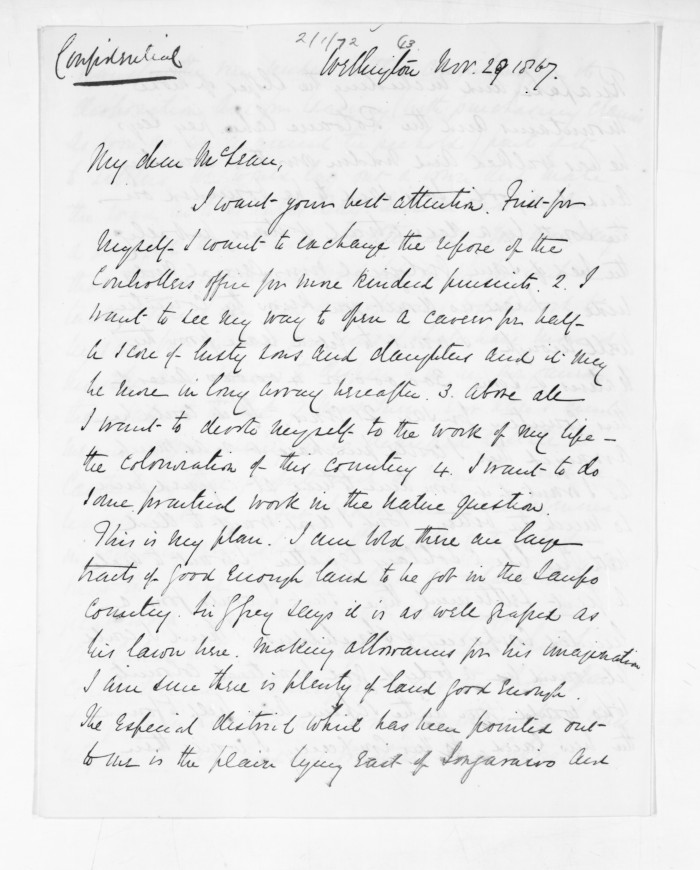 2/1/72 63
Confidential
Wellington Nov. 29 1867.
My dear McLean,
I want your best attention. First for
myself I want to exchange the repose of the
Controllers office for more kindred pursuits. 2. I
want to see my way to open a career for half-
a score of lusty sons and daughters and it may
be more in long array hereafter. 3. above all
I want to devote myself to the work of my life -
the colonisation of this country 4. I want to do
some practical work in the native question.
This is my plan. I am told there are large
tracts of good enough land to be got in the Taupo
Country. Sir G Grey says it is as well grassed as
his lawn here. Making allowances for his imagination
I am sure there is plenty of land good enough.
The especial district which has been pointed out
to me is the plain lying East of Tongariro and